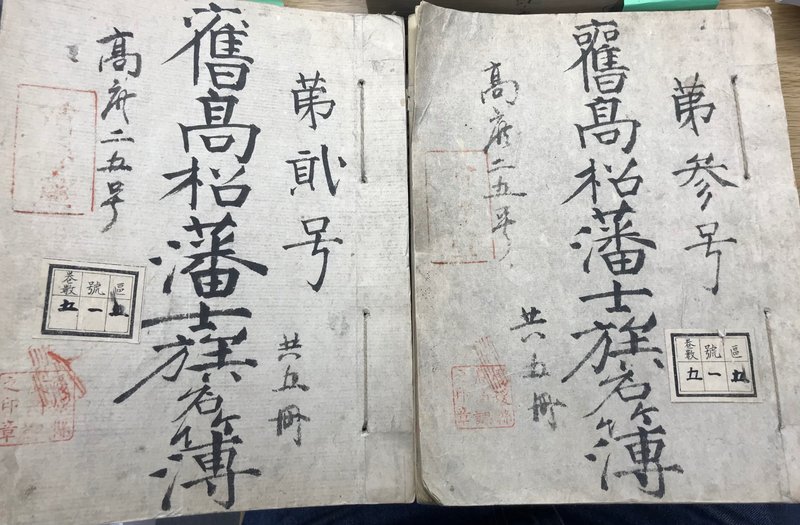 第参号
舊高松藩士族名簿
高府二五号
共五冊
區 號 巻数
五 一 五
第貮号
舊高松藩士族名簿
高府二五号
共五冊
區 號 巻数
五 一 五
之印章